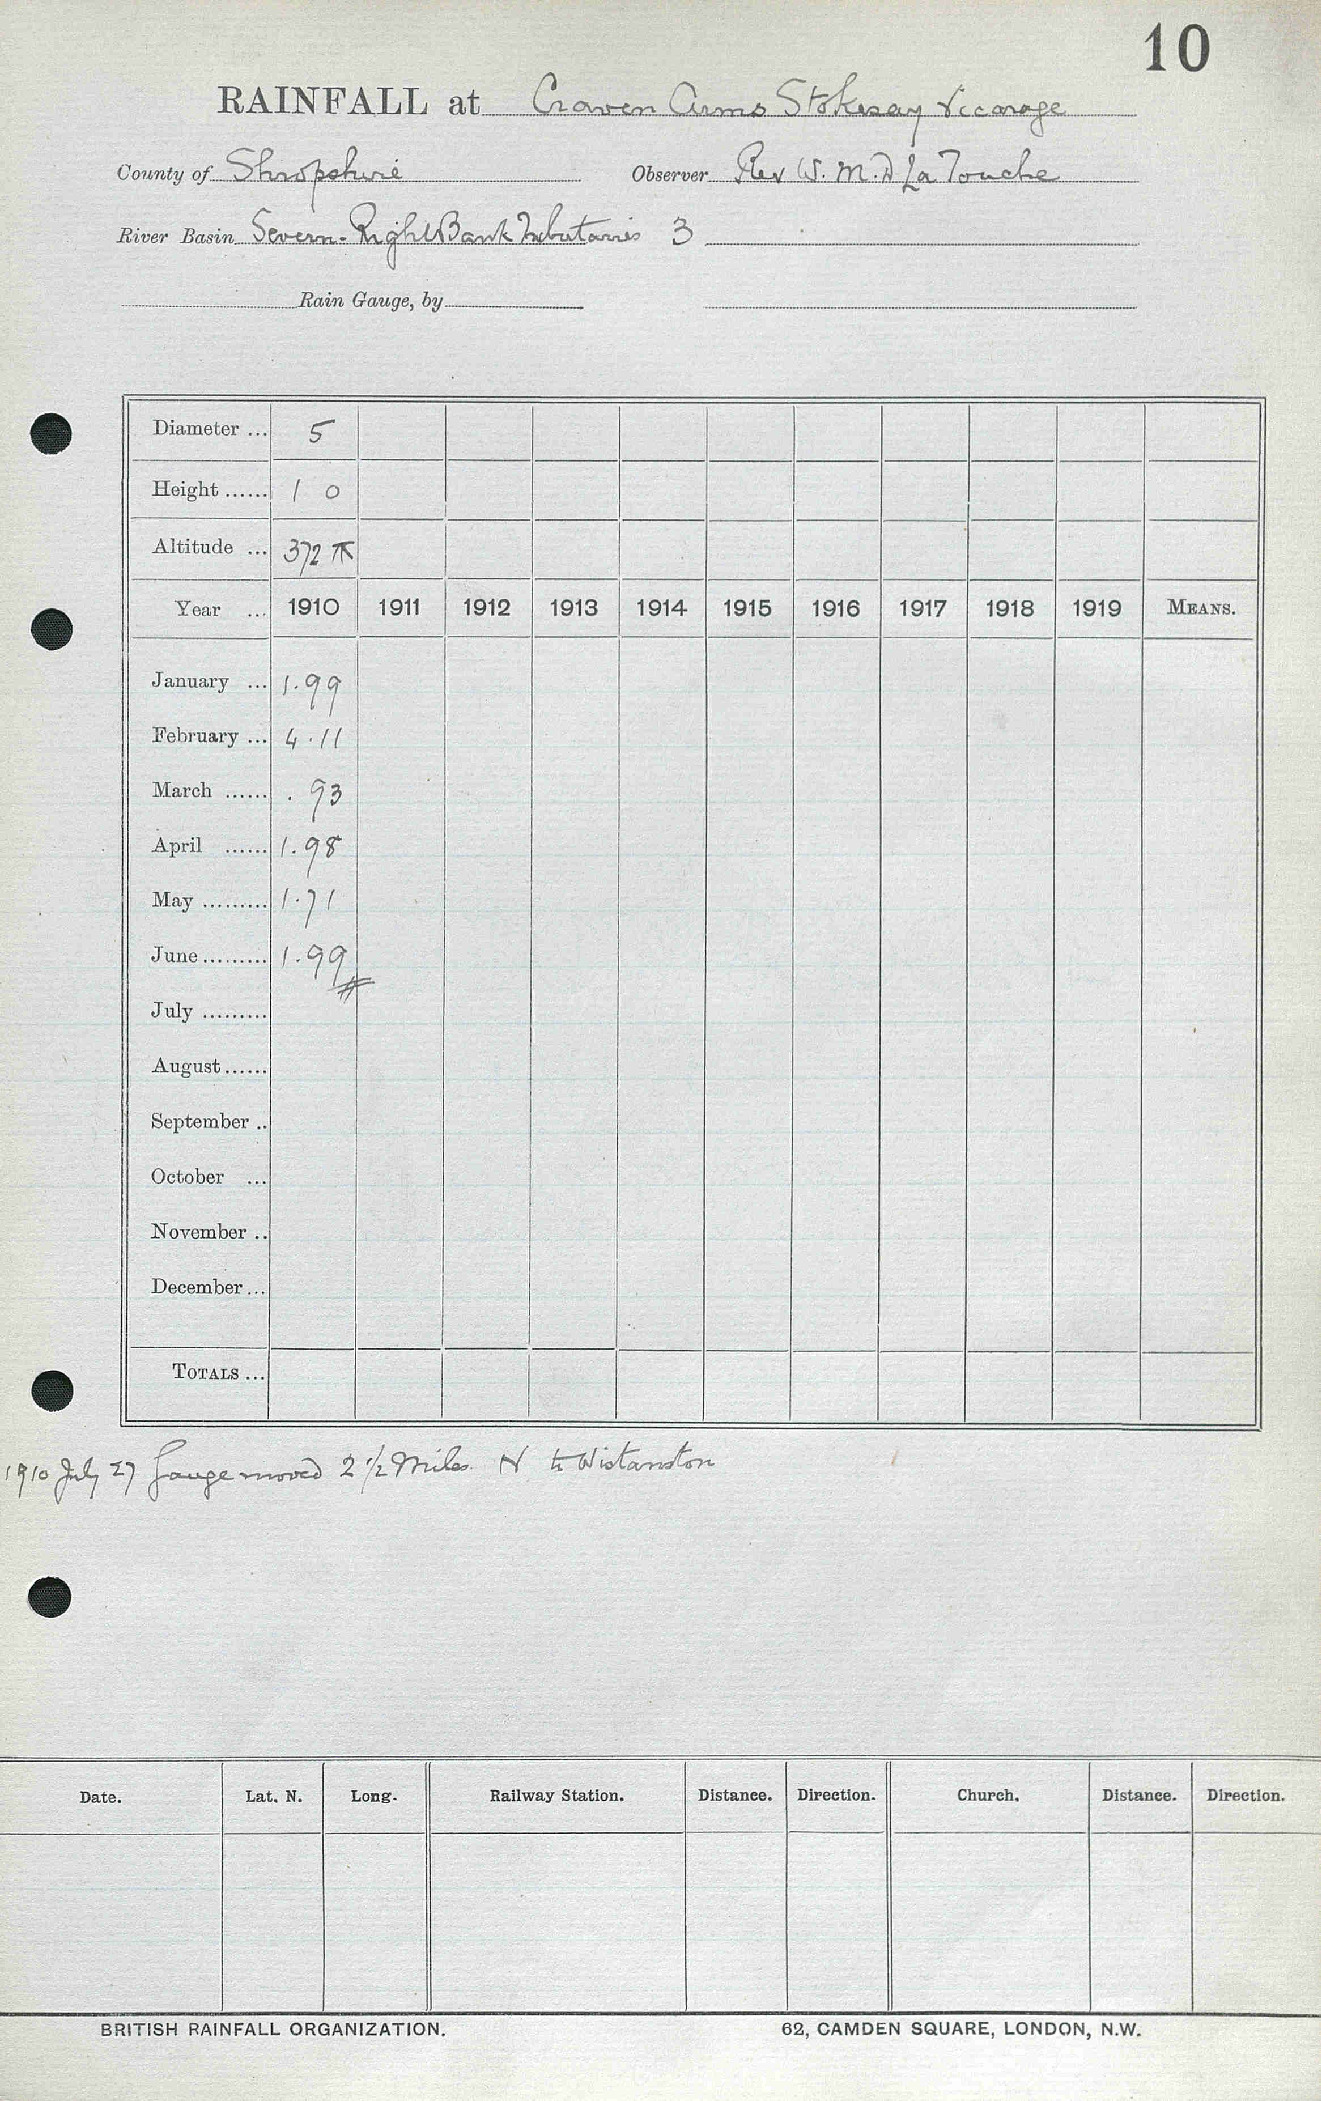 10
RAINFALL at Craven Arms Stokesay Vicarage
County of Shropshire Observer Rev W. M. D La Touche
River Basin Severn-Right Bank Tributaries 3
Rain Gauge, by
Diameter ... 5
Height ...... 1 0
Altitude ... 372
Year ... 1910 1911 1912 1913 1914 1915 1916 1917 1918 1919 MEANS.
January ... 1.99
February ... 4.11
March ...... .93
April ...... 1.98
May ......... 1.71
June ......... 1.99
July .........
August ......
September ..
October ...
November ..
December ...
TOTALS ...
1910 July 27 Gauge moved 2 1/2 Miles N to Wistanston
Date. Lat. N. Long. Railway Station. Distance. Direction. Church. Distance. Direction.
BRITISH RAINFALL ORGANIZATION. 62, CAMDEN SQUARE, LONDON, N.W.